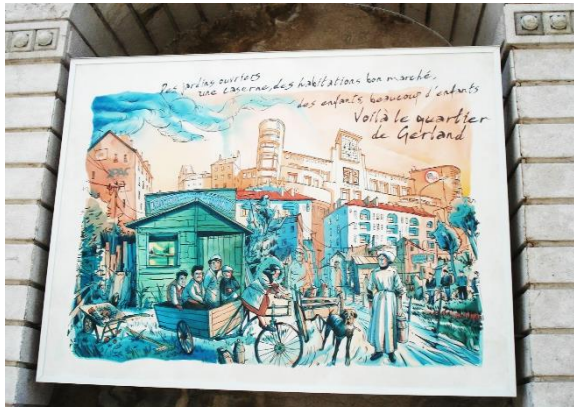 Des jardins ouvriers
une caserne, des habitations bon marché,
des enfants, beaucoup d'enfants
Voilà le quartier
de Gerland